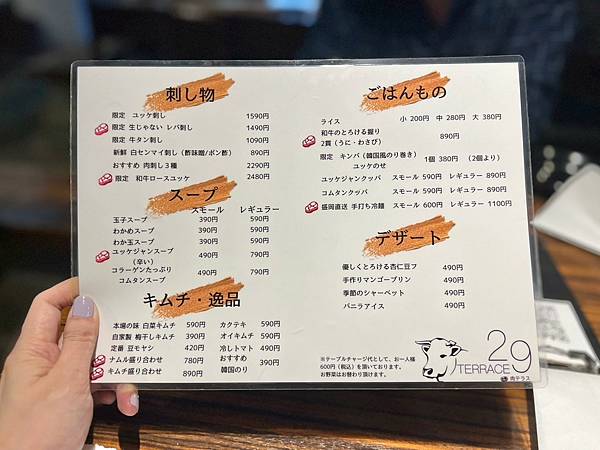 刺し物
限定 ユッケ刺し 1590円
限定 生じゃない レバ刺し 1490円
限定 牛タン刺し 1090円
新鮮 白センマイ刺し (酢味噌/ポン酢) 890円
おすすめ 肉刺し3種 2290円
限定 和牛ロースユッケ 2480円
スープ
スモール レギュラー
玉子スープ 390円 590円
わかめスープ 390円 590円
わか玉スープ 390円 590円
ユッケジャンスープ 490円 790円
(辛い)
コラーゲンたっぷり 490円 790円
コムタンスープ
キムチ・逸品
本場の味 白菜キムチ 590円 カクテキ 590円
自家製 梅干しキムチ 390円 オイキムチ 590円
定番 豆モヤシ 420円 冷しトマト 490円
ナムル盛り合わせ 780円 おすすめ 390円
キムチ盛り合わせ 890円 韓国のり
ごはんもの
ライス 小 200円 中 280円 大 380円
和牛のとろける握り 890円
2貫(うに・わさび)
限定 キンパ(韓国風のり巻き) 1個 380円 (2個より)
ユッケのせ
ユッケジャンクッパ スモール 590円 レギュラー 890円
コムタンクッパ スモール 590円 レギュラー 890円
盛岡直送 手打ち冷麺 スモール 600円 レギュラー 1100円
デザート
優しくとろける杏仁豆フ 490円
手作りマンゴープリン 490円
季節のシャーベット 490円
バニラアイス 490円
※テーブルチャージ代として、お一人様
600円(税込)を頂いております。
お野菜はお替わり頂けます。
29
TERRACE
肉テラス